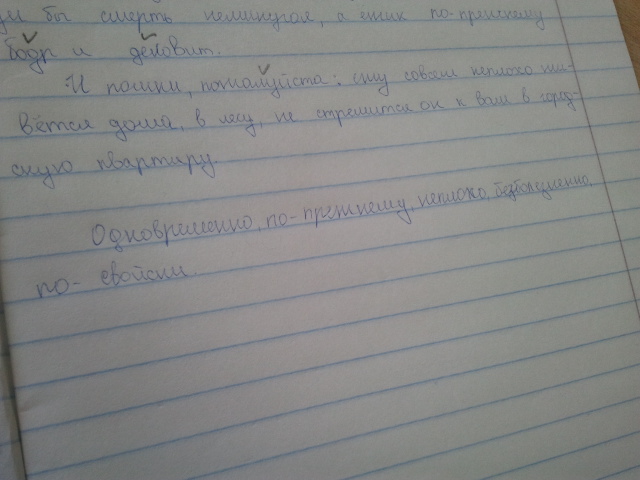 бы смерть неминуема, а ёжик по-прежнему
бодр и деловит.
И помни, пожалуйста: ему совсем неплохо жи-
вётся дома, в лесу, не стремится он к вам в город-
скую квартиру.
Одновременно, по-прежнему, неплохо, безболезненно,
по-свойски.